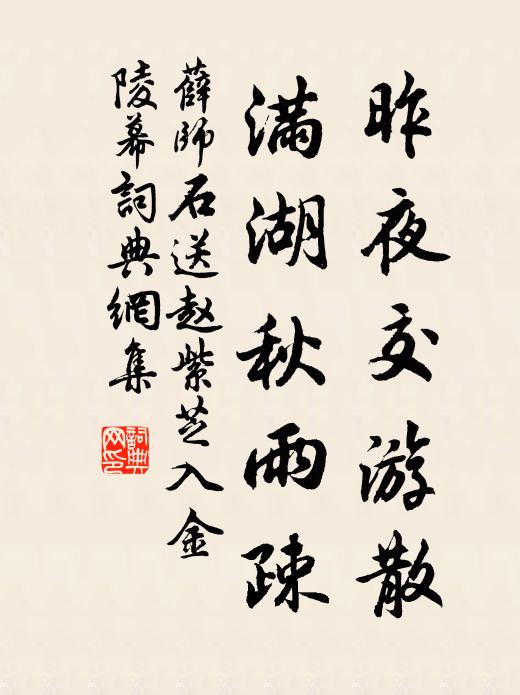 昨夜交游散
満湖秋雨疎
薛師石送赵紫芝入金
陵幕詞典網集
詞典
网印